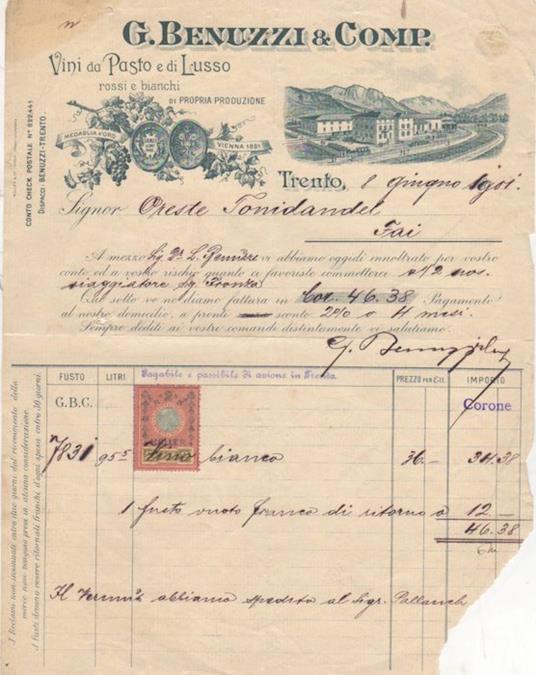 G. BENUZZI & COMP.
Vini da Pasto e di Lusso
rossi e bianchi
DI PROPRIA PRODUZIONE
MEDAGLIA D'ORO
VIENNA 1891
CONTO CHECK POSTALE Nº 822.441
DISPACCI-BENUZZI-TRENTO.
Trento, 8 Giugno 1901.
Signor Oreste Tonidandel
Fai
A mezzo Sig. L. Benuzzi vi abbiamo oggidì innoltrato per vostro
conto ed a vostro rischio quanto ci favoriste commetterci a/2 nos.
viaggiatore Sg. Franka
Qui sotto ve ne diamo fattura in Cor. 46.38 Pagamento
al nostro domicilio, a pronti sconto 2% o 4 mesi.
Sempre dediti ai vostri comandi distintamente vi salutiamo.
G. Benuzzi
FUSTO LITRI Pagabile e passibile di azione in Trento. PREZZO PER Ett. IMPORTO
G.B.C. Corone
HELLER
7831 95 5 Vino bianco 36.— 34.38
1 fusto vuoto franco di ritorno a 12 —
46.38
Il Vermut abbiamo spedito al Sigr. Pallanch
I Reclami non insinuati entro due giorni dal ricevimento della
merce non vengono presi in alcuna considerazione.
I fusti devono essere ritornati franchi d'ogni spesa entro 30 giorni.